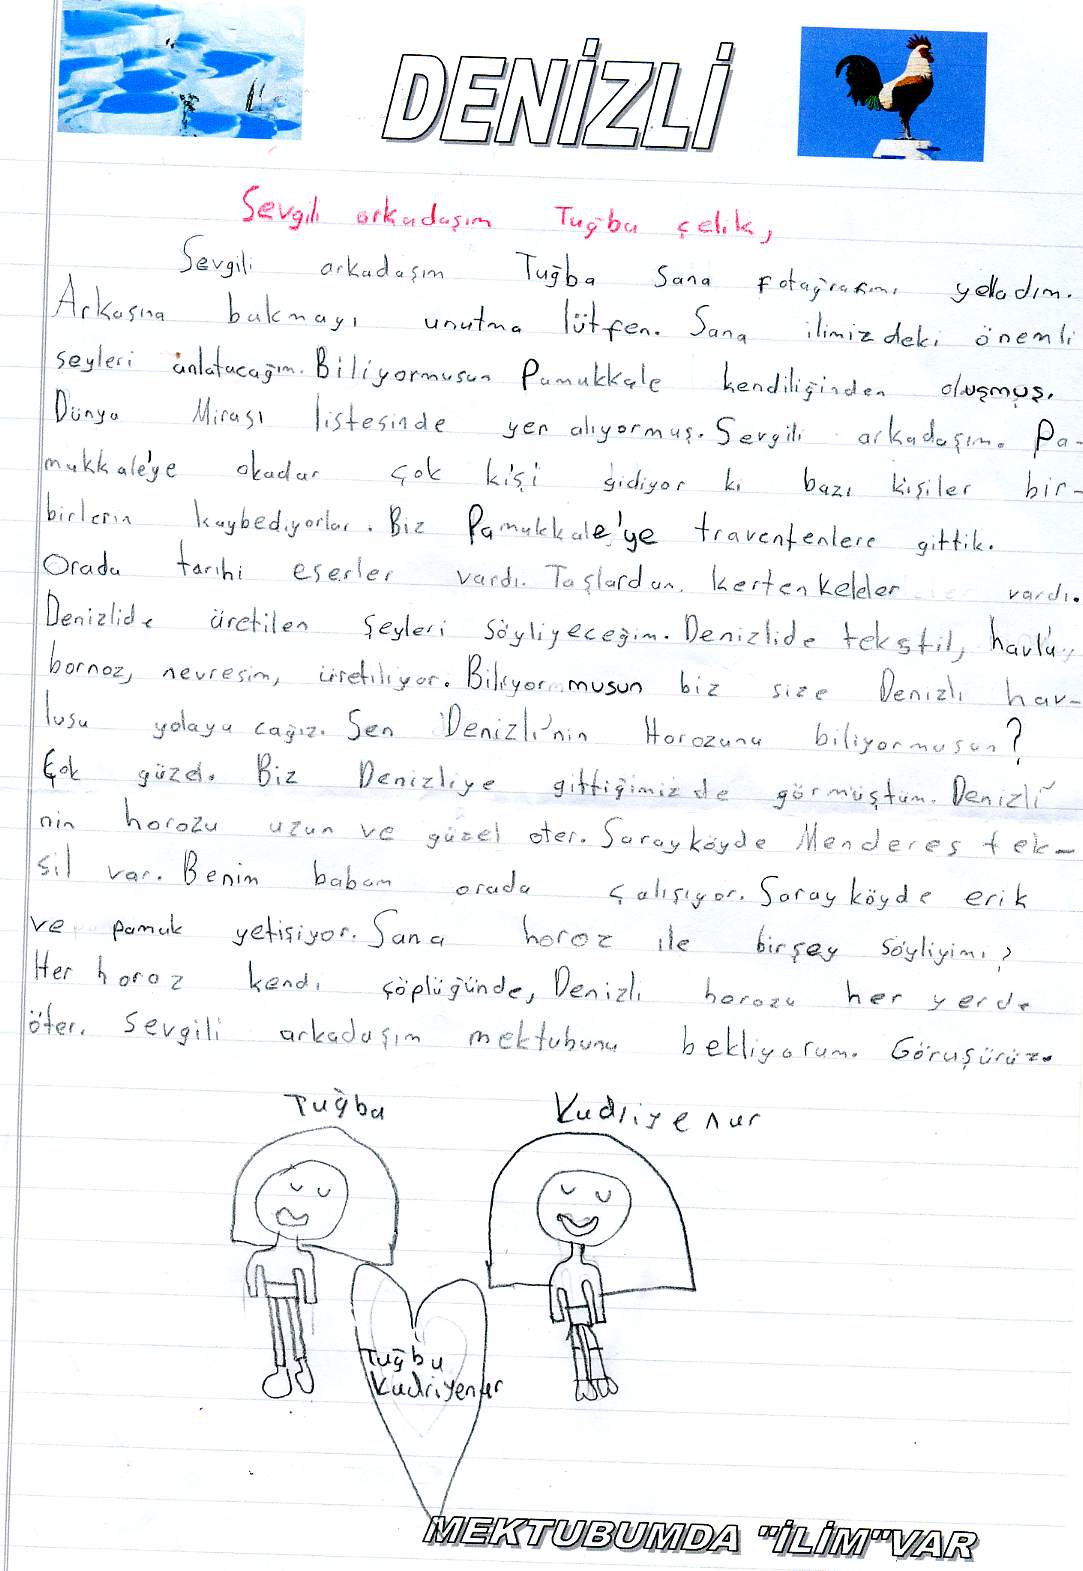 DENİZLİ
Sevgili arkadaşım Tuğba çelik,
Sevgili arkadaşım Tuğba Sana fotağrafımı yolladım.
Arkasına bakmayı unutma lütfen. Sana ilimizdeki önemli
seyleri anlatacağım. Biliyormusun Pamukkale kendiliğinden oluşmuş.
Dünya Mirası listesinde yer alıyormuş. Sevgili arkadaşım. Pa-
mukkale'ye okadar çok kişi gidiyor ki bazı kişiler bir-
birlerin kaybediyorlar. Biz Pamukkale'ye traventenlere gittik.
Orada tarihi eserler vardı. Taşlardan. kertenkeleler vardı.
Denizlide üretilen şeyleri söyliyeceğim. Denizlide tekstil, havlu,
bornoz, nevresim, üretiliyor. Biliyormusun biz size Denizli hav-
lusu yolayacağız. Sen Denizli'nin Horozunu biliyormusun?
Çok güzel. Biz Denizliye gittiğimizde görmüştüm. Denizli'
nin horozu uzun ve güzel öter. Sarayköyde Menderes tek-
sil var. Benim babam orada çalışıyor. Sarayköyde erik
ve pamuk yetişiyor. Sana horoz ile birşey söyliyimi?
Her horoz kendi çöplüğünde, Denizli horozu her yerde
öter. Sevgili arkadaşım mektubunu bekliyorum. Görüşürüz.
Tuğba Kudriyenur
Tuğba
Kudriyenur
MEKTUBUMDA "İLİM"VAR